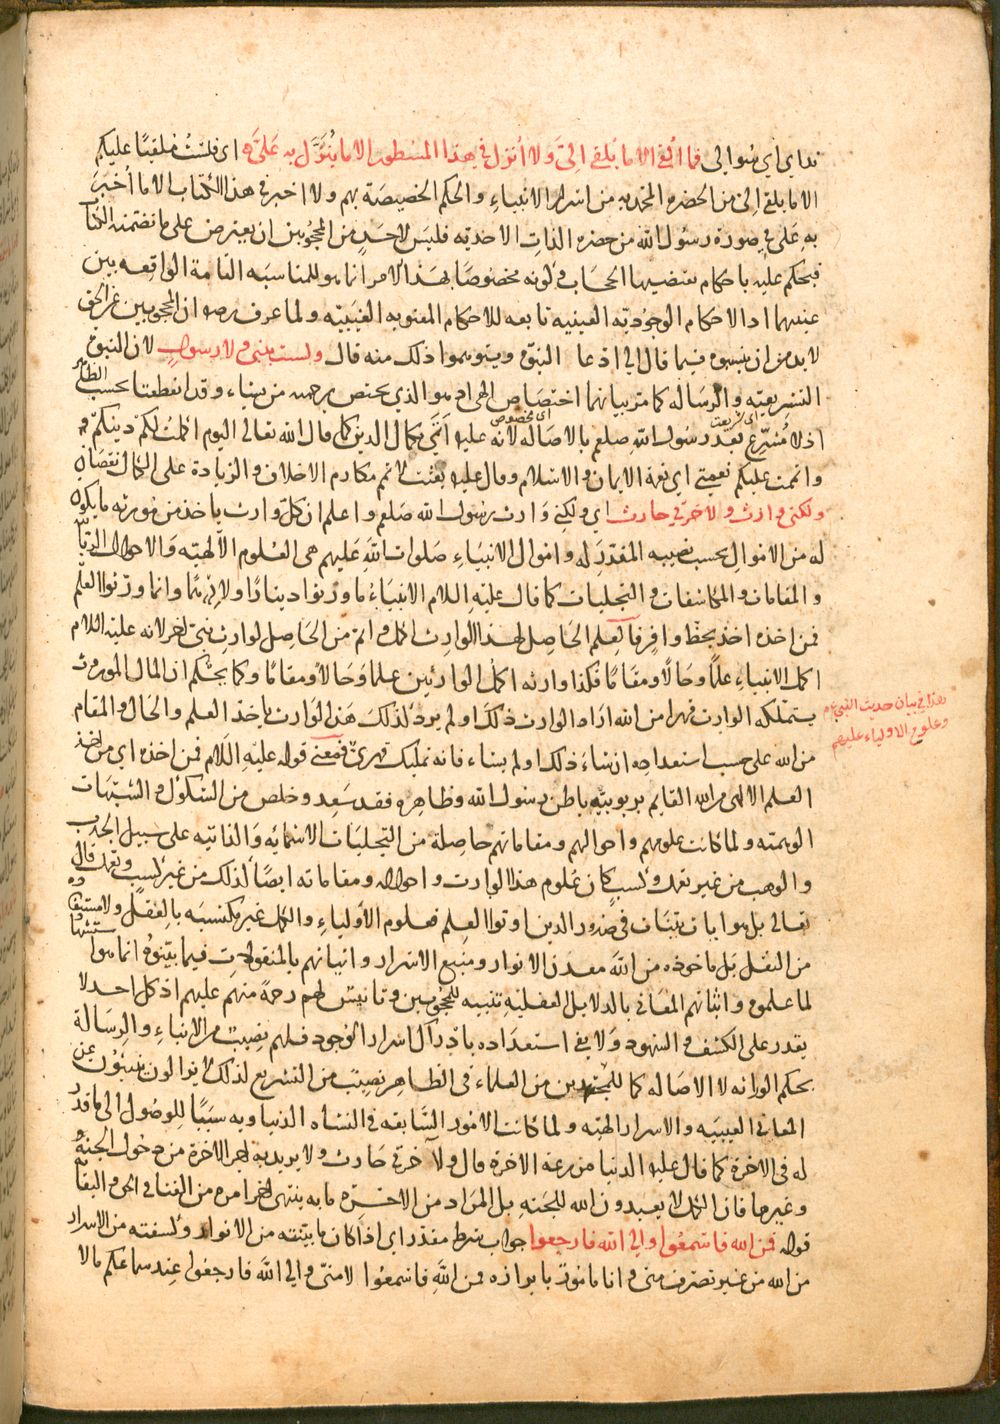 نداي اي سوالي فما القي الا ما يلقي الي ولا انزل في هذا المسطور الا ما يُنَزَّل به عَلَيَّ اي فلست ملقيا عليكم
الا ما يلقي الي من الحضرة المحمدية من اسرار الانبياء والحكم الخصيصة بهم ولا اخبر في هذا الكتاب الا ما اُخبِرَ
به عَلي في صورة رسول الله من حضرة الذات الاحدية فليس لاحد من المحجوبين ان يعترض على ما تضمنه الكتاب
فيحكم عليه باحكام يقتضيها الحجاب في كونه مخصوصا بهذا الامر انما هو للمناسبة التامة الواقعة بين
عينيهما اذ الاحكام الوجودية العينية تابعه للاحكام المعنوية الغيبية ولما عرف رضه ان المحجوبين عن الحق
لا بد من ان ينسبوه فيما قال الي ادعا النبوة ويتوهموا ذلك منه قال ولست بنبي ولا رسول لان النبوة
التشريعيه والرسالة كما مر بيانهما اختصاص الهي اذ هو الذي يختص برحمته من يشاء وقد انقطعتا بحسب الظاهر
اي شريعت اي مخصوص
اذ لا مُشرِّع بعد رسول الله صلعم بالاصالة لانه عليه اتي بكمال الدين كما قال الله تعالى اليوم اكملت لكم دينكم
واتممت عليكم نعمتي اي نعمة الايمان والاسلام وقال عليه بعثت لاتمم مكارم الاخلاق والزيادة على الكمال نقصان
ولكني وارث ولاخرتي حارث اي ولكني وارث رسول الله صلعم واعلم ان كل وارث ياخذ من مورثه ما يكون
له من الاموال بحسب نصيبه المقدر له واموال الانبياء صلوات الله عليهم هي العلوم الالهية والاحوال الربانية
والمقامات والمكاشفات والتجليات كما قال عليه السلام الانبياء ما ورثوا دينارا ولا درهما وانما ورثوا العلم
فمن اخذه اخذ بحظ وافر فالعلم الحاصل لهذا الوارث اكمل واتم من الحاصل لوارث نبي اخر لانه عليه السلام
اكمل الانبياء علما وحالا ومقاما فكذا وارثه اكمل الوارثين علما وحالا ومقاما وكما بحكم ان المال الموروث
هذا في بيان حديث النبي عم
وعلوم الاولياء عليهم
يتملكه الوارث قهرا من الله اراد الوارث ذلك او لم يرد كذلك هذا الوارث ياخذ العلم والحال والمقام
من الله على حسب استعداده ان شاء ذلك او لم يشاء فانه تمليك قهري فمعنى قوله عليه السلام فمن اخذه اي من اخذ
العلم الالهي من الله القايم بربوبيته باطن رسول الله وظاهره فقد سعد وخلص من الشكوك والشبهات
الوهميه ولما كانت علومهم واحوالهم ومقاماتهم حاصلة من التجليات الاسمائيه والذاتيه على سبيل الجذب
والوهب من غير تعمل وكسب كان علوم هذا الوارث واحواله ومقاماته ايضا كذلك من غير كسب وتعمل قال
تعالى بل هو ايات بينات في صدور الذين اوتوا العلم فعلوم الاولياء والكمل غير مكتسبه بالعقل ولا مستفادة
من النقل بل ماخوذه من الله معدن الانوار ومنبع الاسرار واتيانهم بالمنقولات فيما بينوه انما هو استشهادا
لما علموه واتيانهم المعاني بالدلايل العقليه تنبيه للمحجوبين وتانيس لهم رحمة منهم عليهم اذ كل احد لا
يقدر على الكشف والشهود ولا يفي استعداده بادراك اسرار الوجود فلهم نصيب من الانبياء والرسالة
بحكم الوراثه لا الاصاله كما للمجتهدين من العلماء في الظاهر نصيب من التشريع لذلك لا يزالون منبئون عن
المعاني الغيبيه والاسرار الهيه ولما كانت الامور السابقه في النشاه الدنياويه سببا للوصول الى ما قدر
له في الاخرة كما قال عليه الدنيا مزرعة الاخرة قال ولآخرتي حارث ولا يريد به اجر الاخرة من دخول الجنة
وغيرها فان الكمل لا يعبدون الله للجنه بل المراد من الاخرة ما به ينتهي اخر امره من الفنا في الحق والبقا
قوله فمن الله فاسمعوا والي الله فارجعوا جواب شرط مقدر اي اذا كان ما بينته من الانوار وكشفته من الاسرار
من الله من غير تصرف مني وانا مامور بابرازه فمن الله فاسمعوا لا مني والي الله فارجعوا عند سماعكم ما لا